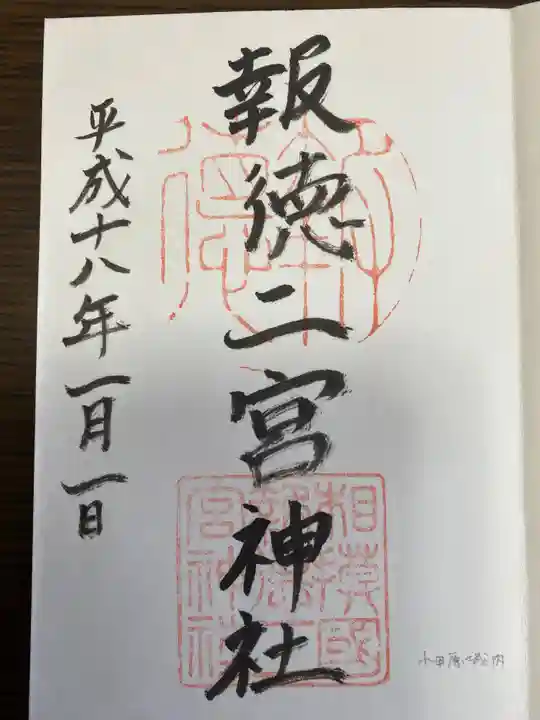 報徳二宮神社
平成十八年一月一日
報徳
相模國
報徳二
宮神社
小田原城内